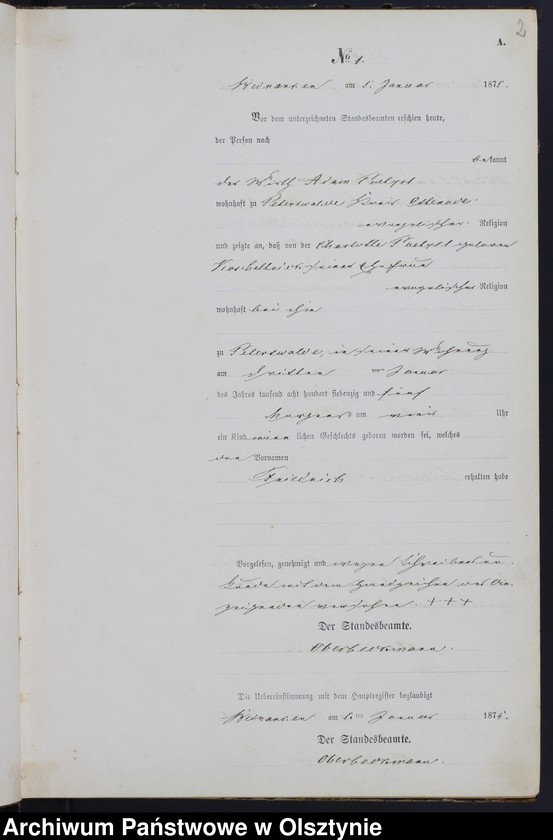 2
A.
No 1.
am 5. Januar 1875.
Vor dem unterzeichneten Standesbeamten erschien heute,
der Person nach
bekannt
der Wirth Adam
wohnhaft zu Peterswalde Kreis Osterode
evangelischer Religion
und zeigte an, daß von der Charlotte geborenen
seiner Ehefrau
evangelischer Religion
wohnhaft bei ihm
zu Peterswalde, in seiner Wohnung
am dritten ten Januar
des Jahres tausend acht hundert siebenzig und fünf
Morgens um vier Uhr
ein Kind männlichen Geschlechts geboren worden sei, welches
den Vornamen
Friedrich erhalten habe
Vorgelesen, genehmigt und wegen Schreibensun-
kunde mit dem Handzeichen des An-
zeigenden versehen. +++
Der Standesbeamte.
Oberbeckmann.
Die Uebereinstimmung mit dem Hauptregister beglaubigt
am 5. ten Januar 1875.
Der Standesbeamte.
Oberbeckmann.
Archiwum Państwowe w Olsztynie